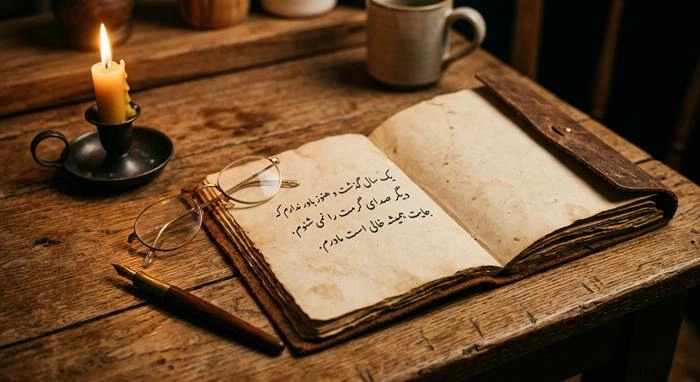 یک سال گذشت و هنوز باور ندارم که
دیگر صدای گرمت را نمی شنوم.
جایت همیشه خالی است مادرم.